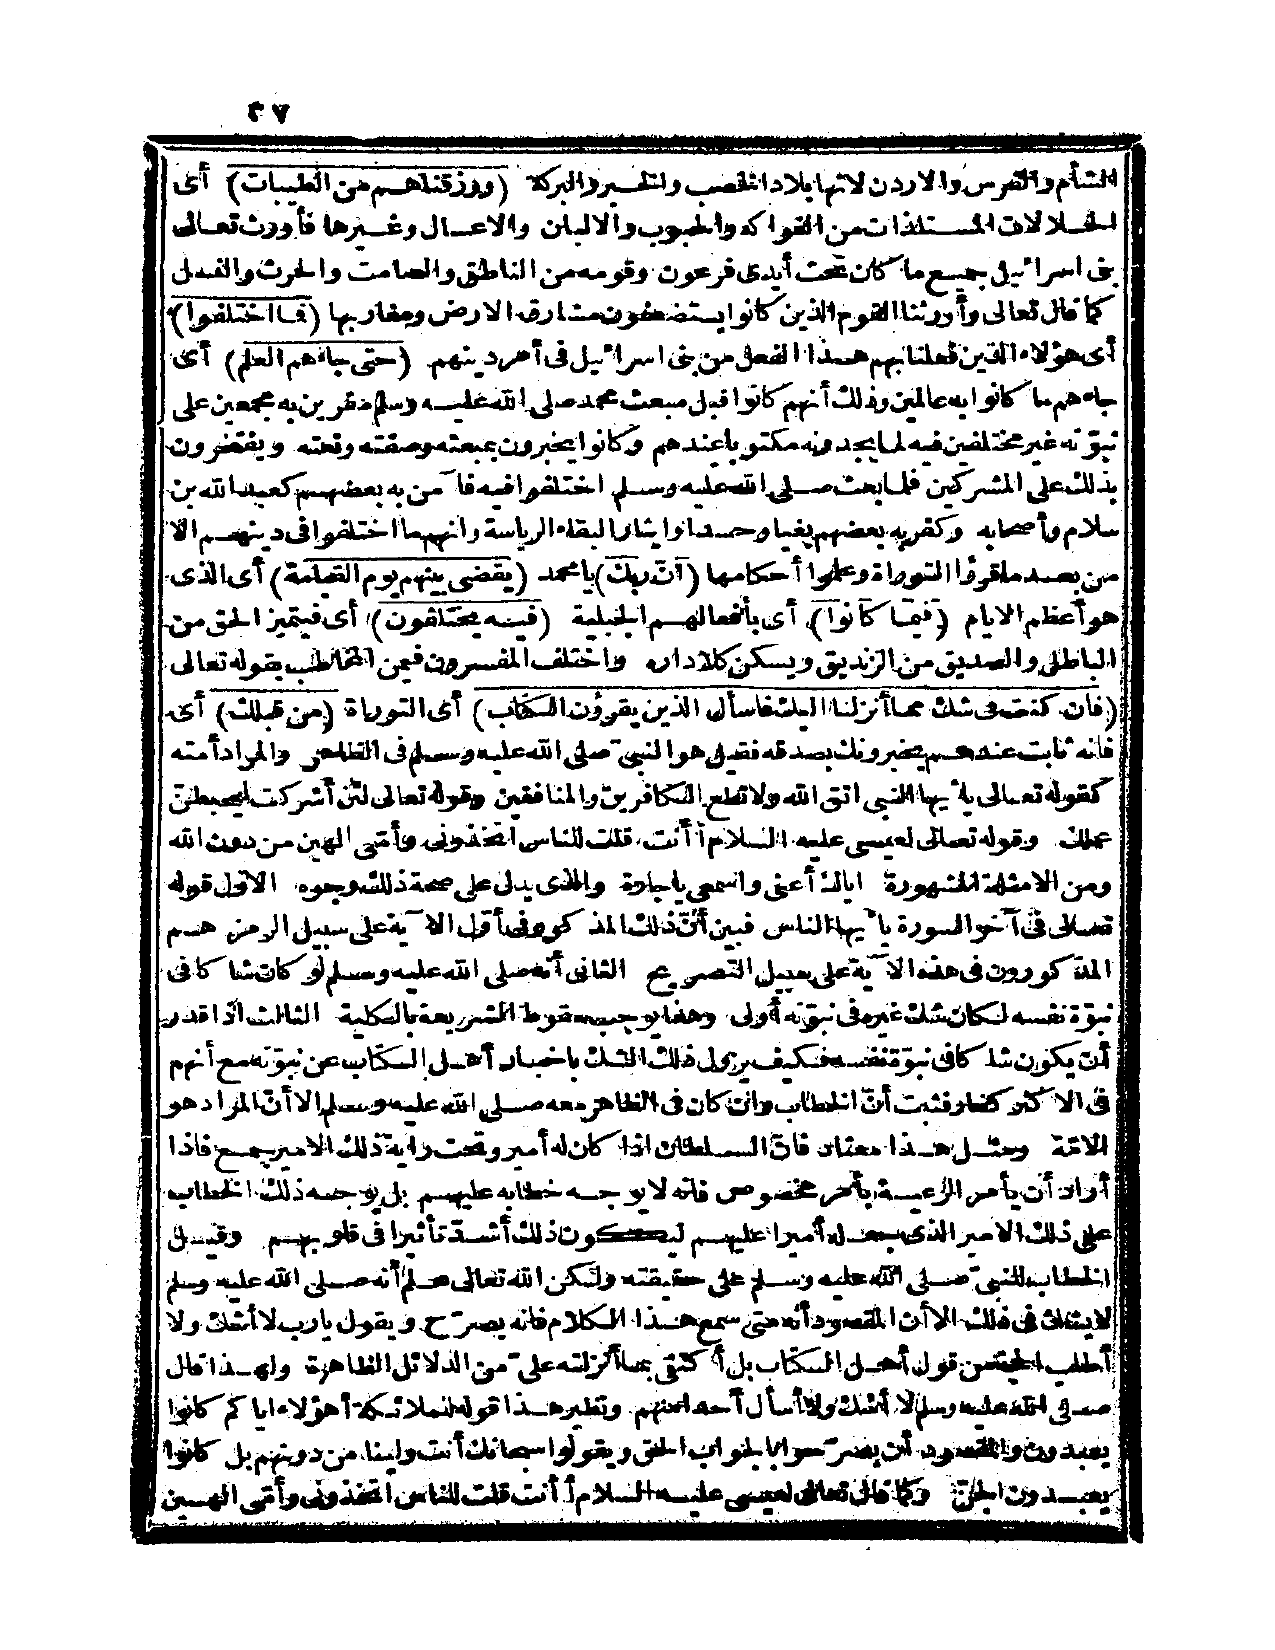 ٣٧
الشأم والقدس والاردن لانها بلاد الخصب والخير والبركة (ورزقناهم من الطيبات) أى
الحلالات المستلذات من الفواكه والحبوب والالبان والاعسال وغيرها فأورث تعالى
بنى اسرائيل جميع ما كان تحت أيدى فرعون وقومه من الناطق والصامت والحرث والنسل
كما قال تعالى وأورثنا القوم الذين كانوا يستضعفون مشارق الارض ومغاربها (فما اختلفوا)
أى هؤلاء الذين فعلنا بهم هذا الفعل من بنى اسرائيل فى أمر دينهم (حتى جاءهم العلم) أى
جاءهم ما كانوا به عالمين وذلك أنهم كانوا قبل مبعث محمد صلى الله عليه وسلم مقرين به مجمعين على
نبوّته غير مختلفين فيه لما يجدونه مكتوبا عندهم وكانوا يخبرون بمبعثه وصفته ونعته ويفتخرون
بذلك على المشركين فلما بعث صلى الله عليه وسلم اختلفوا فيه فآمن به بعضهم كعبد الله بن
سلام وأصحابه وكفر به بعضهم بغيا وحسدا وايثارا لبقاء الرياسة وانهم ما اختلفوا فى دينهم الا
من بعد ما قرؤا التوراة وعلموا أحكامها (انّ ربك) يا محمد (يقضى بينهم يوم القيامة) أى الذى
هو أعظم الايام (فيما كانوا) أى بأفعالهم الجبلية (فيه يختلفون) أى فيتميز الحق من
الباطل والصديق من الزنديق ويسكن كلا داره واختلف المفسرون فيمن المخاطب بقوله تعالى
(فان كنت فى شك مما أنزلنا اليك فاسأل الذين يقرؤن الكتاب) أى التوراة (من قبلك) أى
فانه ثابت عندهم يخبرونك بصدقه فقيل هو النبىّ صلى الله عليه وسلم فى الظاهر والمراد أمته
كقوله تعالى يا أيها النبى اتق الله ولا تطع الكافرين والمنافقين وقوله تعالى لئن أشركت ليحبطنّ
عملك وقوله تعالى لعيسى عليه السلام أأنت قلت للناس اتخذونى وأمّى الهين من دون الله
ومن الامثلة المشهورة اياك أعنى واسمعى يا جارة والذى يدل على صحة ذلك وجوه الاوّل قوله
تعالى فى آخر السورة يا أيها الناس فبين أنّ ذلك المذكور فى أوّل الآية على سبيل الرمز هم
المذكورون فى هذه الآية على سبيل التصريح الثانى أنه صلى الله عليه وسلم لو كان شاكا فى
نبوّة نفسه لكان شك غيره فى نبوّته أولى وهذا يوجب سقوط الشريعة بالكلية الثالث اذا قدر
أن يكون شاكا فى نبوّة نفسه فكيف يزول ذلك الشك باخبار أهل الكتاب عن نبوّته مع أنهم
فى الاكثر كفار فثبت أنّ الخطاب وان كان فى الظاهر معه صلى الله عليه وسلم الا أنّ المراد هو
الامّة ومثل هذا معتاد فانّ السلطان اذا كان له أمير وتحت راية ذلك الامير جمع فاذا
أراد أن يأمر الرعية بأمر مخصوص فانه لا يوجه خطابه عليهم بل يوجه ذلك الخطاب
على ذلك الامير الذى جعله أميرا عليهم ليكون ذلك أشدّ تأثيرا فى قلوبهم وقيل
الخطاب للنبىّ صلى الله عليه وسلم على حقيقته ولكن الله تعالى علم أنه صلى الله عليه وسلم
لا يشك فى ذلك الا أن المقصود أنه متى سمع هذا الكلام فانه يصرّح ويقول يا رب لا أشك ولا
أطلب الحجة من قول أهل الكتاب بل أكتفى بما أنزلته علىّ من الدلائل الظاهرة ولهذا قال
صلى الله عليه وسلم لا أشك ولا أسأل أحدا منهم ونظير هذا قوله للملائكة أهؤلاء اياكم كانوا
يعبدون والمقصود أن يصرّحوا بالجواب الحق ويقولوا سبحانك أنت ولينا من دونهم بل كانوا
يعبدون الجنّ وكما قال تعالى لعيسى عليه السلام أأنت قلت للناس اتخذونى وأمّى الهين